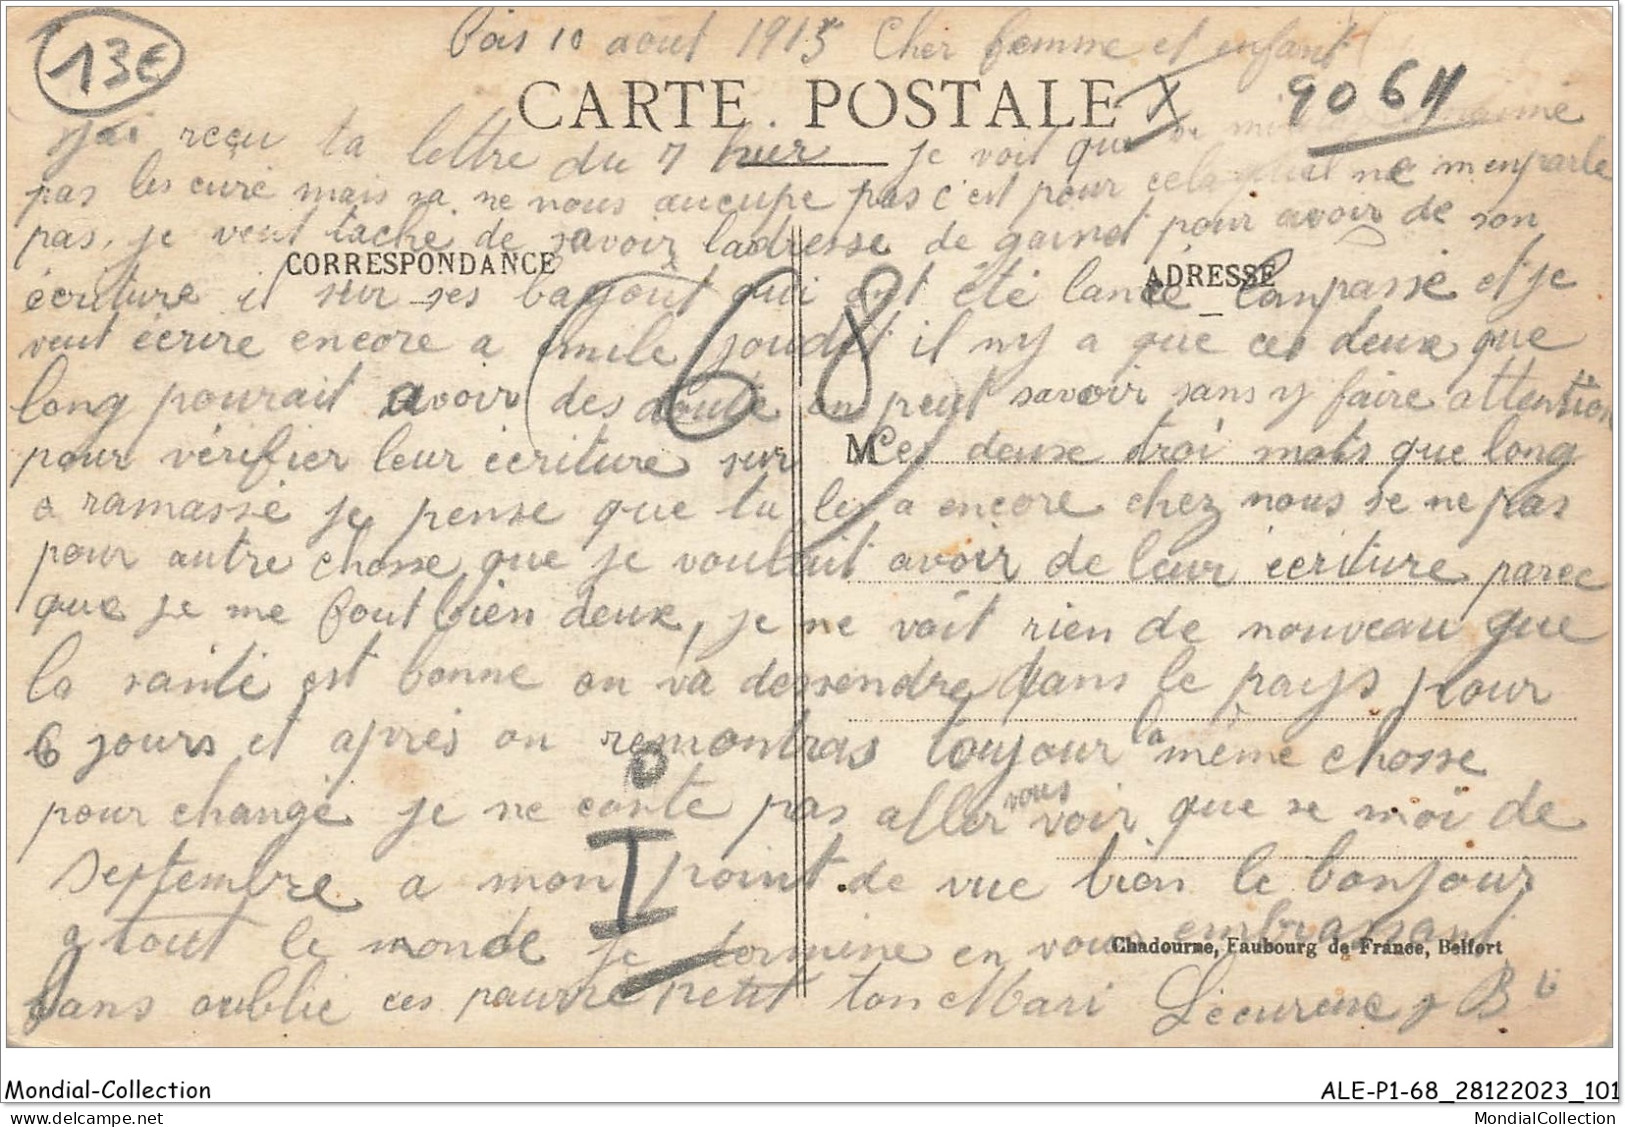 13€
10 aout 1915 Cher femme et enfant
CARTE POSTALE
9064
jai reçu ta lettre du 7 hier je voit que
pas les curé mais sa ne nous aucupe pas c'est pour cela ne m'en parle
pas, je veut tache de savoir ladresse de pour avoir de son
CORRESPONDANCE
ADRESSE
écriture et sur ses qui ont été lancé lanpassé et je
veut écrire encore a Emile il ny a que ces deux que
68
long pourait avoir des doute on peut savoir sans y faire attention
pour vérifier leur écriture sur ces deux troi mots que long
M
a ramassé je pense que tu les a encore chez nous se ne pas
pour autre chosse que je voulait avoir de leur écriture parce
que je me fout bien deux, je ne voit rien de nouveau que
la santé est bonne on va dessendre dans le pays pour
6 jours et après on remontras toujour la même chosse
pour changé je ne conte pas aller vous voir que se moi de
septembre a mon point de vue bien le bonjour
I
a tout le monde je termine en vous embrassant
Chadourne, Faubourg de France, Belfort
sans oublié ces pauvre petit ton Mari Lecureux
Mondial-Collection
ALE-P1-68_28122023_101
www.delcampe.net
MondialCollection